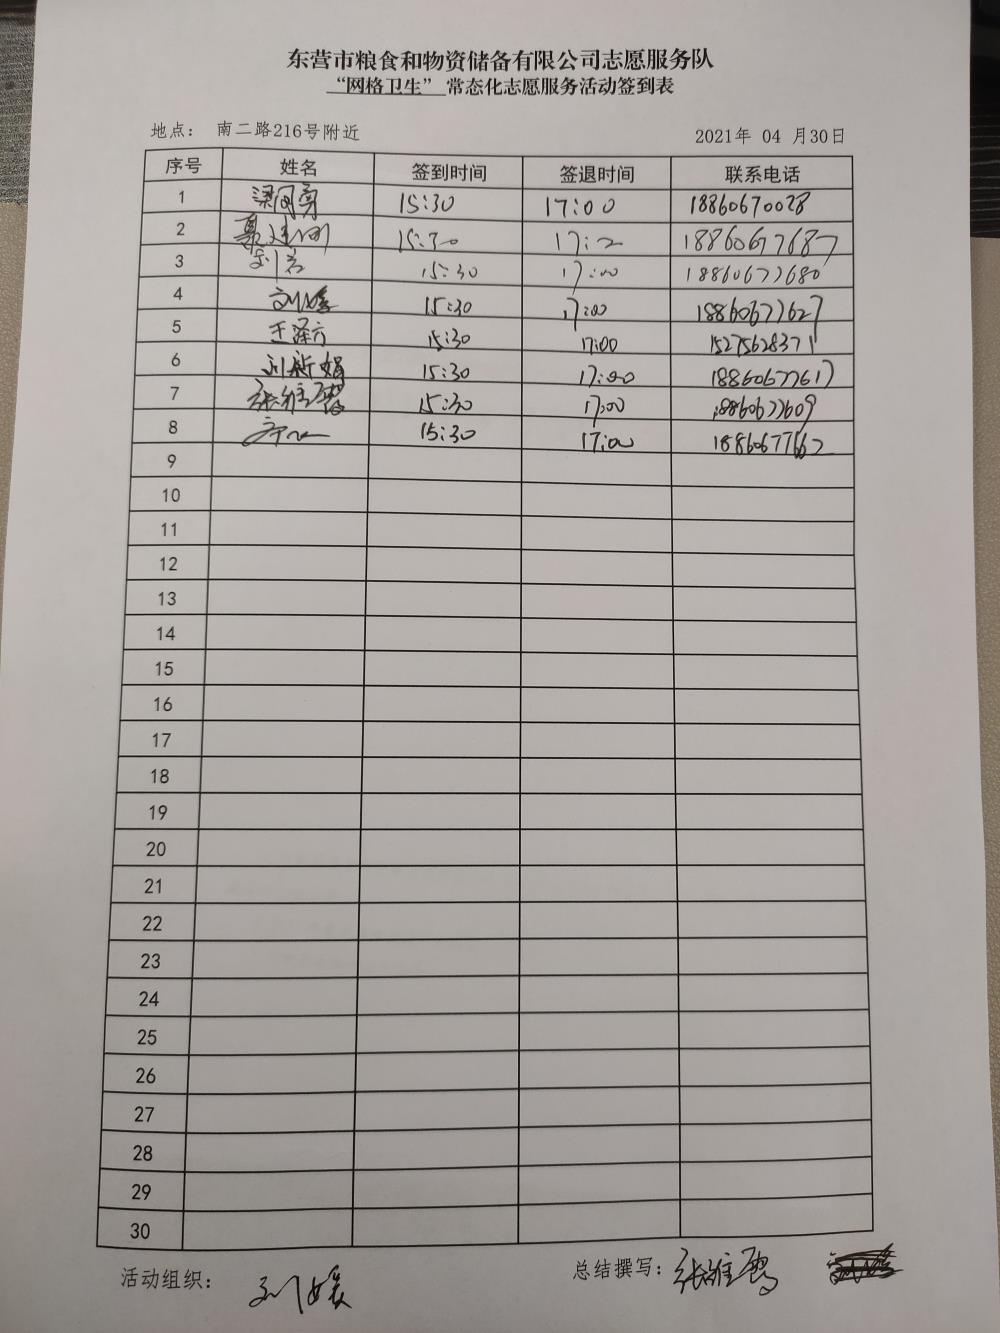 东营市粮食和物资储备有限公司志愿服务队
“网格卫生”常态化志愿服务活动签到表
地点： 南二路216号附近 2021年 04 月30日
序号 姓名 签到时间 签退时间 联系电话
1 15:30 17:00 18860670028
2 15:30 17:00 18860677687
3 刘岩 15:30 17:00 18860677680
4 刘媛 15:30 17:00 18860677627
5 王泽方 15:30 17:00 15275628371
6 刘新娟 15:30 17:00 18860677617
7 张维霞 15:30 17:00 18860677609
8 15:30 17:00 18860677662
9
10
11
12
13
14
15
16
17
18
19
20
21
22
23
24
25
26
27
28
29
30
活动组织： 刘媛 总结撰写： 张维霞